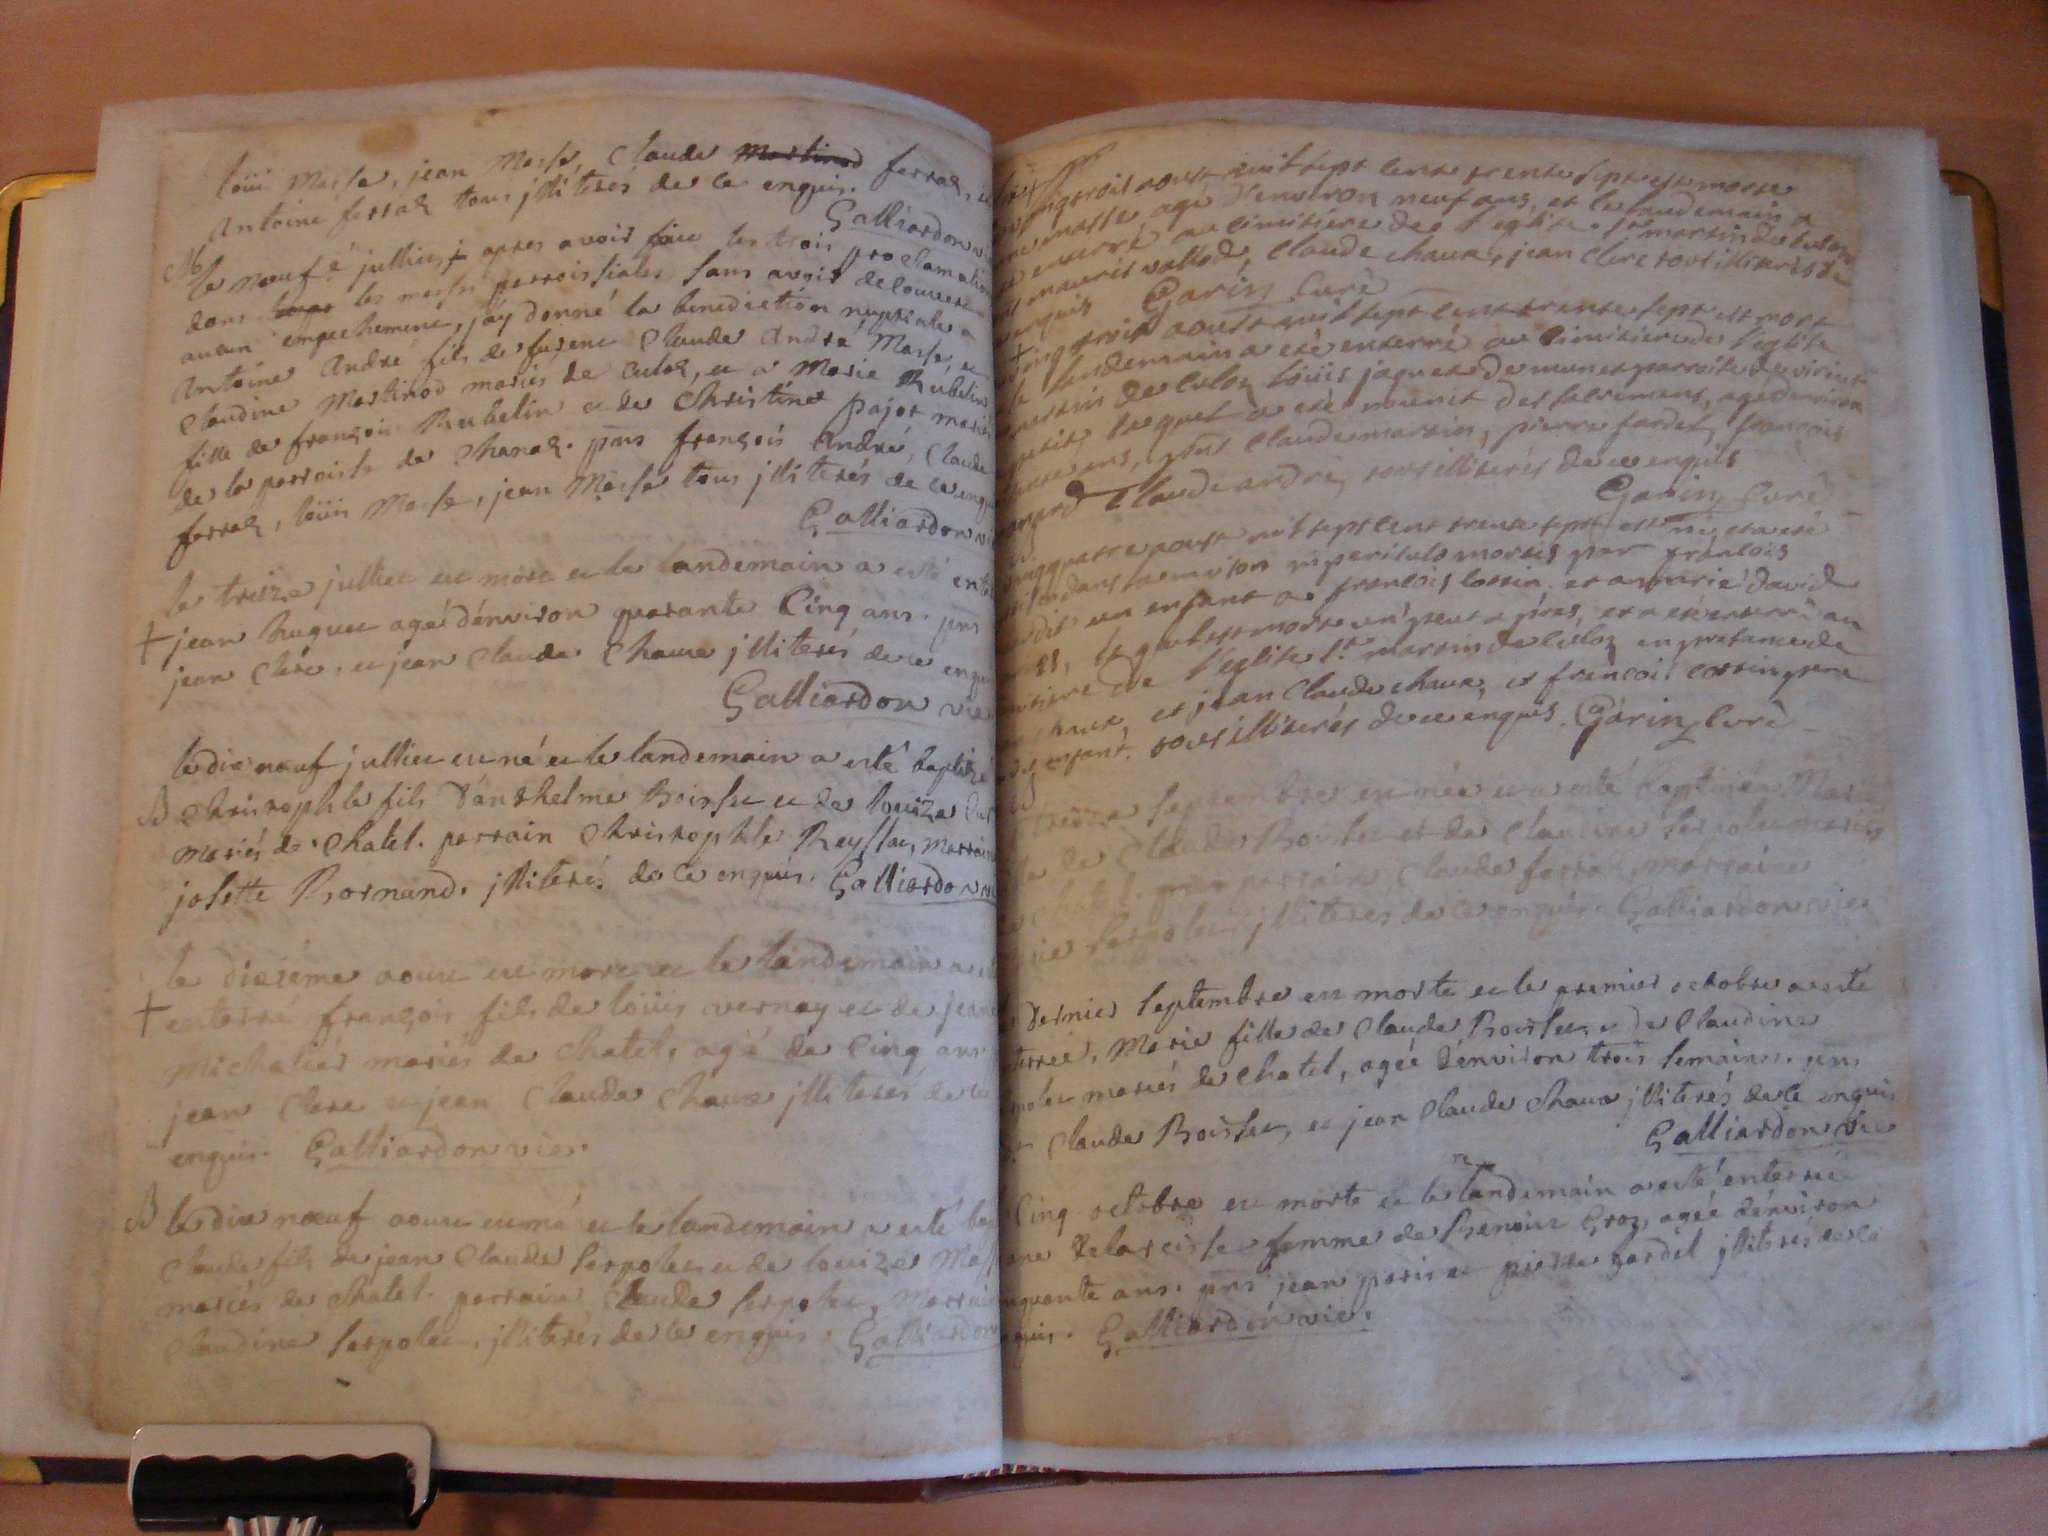 loüis Masse, jean Masse, Claude Martinod ferraz,
Antoine ferraz tous jlliterés de ce enquis.
Galliardon
M
le neufe julliet apres avoir faict les trois proclamations
dans les messes parroissiales sans avoir decouvert
aucun empechement, j'ay donné la benediction nuptiale a
Antoine André fils de Claude André Masse, et
Claudine Martinod mariés de Culoz, et a Marie Rubelin
fille de françois Rubelin et de Christine pajot mariés
de la parroisse de Chanaz. pns françois André, Claude
ferraz, loüis Masse, jean Masse tous jlliterés de ce enquis
Galliardon
le treize julliet est mort et le landemain a esté enterré
+ jean huguet agé d'environ quarante Cinq ans. pns
jean Clere, et jean Claude Chaux jlliterés de ce enquis
Galliardon vic
le dix neuf julliet est né et le landemain a esté baptizé
B Christophle fils d'Anthelme Boisset et de louize
mariés de Chatel. parrain Christophle Reyffat, marraine
josette Bornand. jlliterés de ce enquis. Galliardon
le dixième aoust est mort et le landemain a esté
+ enterré françois fils de loüis vernay et de jeanne
Michalier mariés de Chatel, agé de Cinq ans
jean Clere et jean Claude Chaux jlliterés de ce
enquis. Galliardon vic.
B le dix neuf aoust est né et le landemain a esté
Claude fils de jean Claude Serpolet et de louize
mariés de Chatel. parrain Claude Serpolet, Marraine
Claudine Serpolet, jlliterés de ce enquis. Galliardon
aoust mil sept cent trente sept est morte
masse agé d'environ neuf ans, et le landemain a
enterré au cimitiere de l'eglise st martin de Culoz
mauris vallod, Claude chaux, jean Clere tous illiterés de
enquis Garin Curé
+ trois aoust mil sept cent trente sept est mort
le landemain a eté enterré au Cimitiere de l'eglise
martin de Culoz loüis jaquet de parroisse de virieu
petit, lequel a eté nourit des sacrements, agé d'environ
ans, pns Claude martin, pierre fardel, françois
Claude andré, tous illiterés de ce enquis
Garin Curé
quatre aoust mil sept cent trente sept est né, et a eté
dans la maison in periculo mortis par francois
dit un enfant a francois cottin et a david
lequel est mort un peut apres, et a eté enterré au
cimitiere de l'eglise st martin de Culoz en presance de
chaux, et jean Claude chaux, et francois cottin pere
dit enfant. tous illiterés de ce enquis. Garin Curé
B
treize septembre est née et a esté baptizée Marie
de Claude Boisset et de Claudine Serpolet mariés
Chatel. parrain Claude ferraz, marraine
Serpolet, jlliterés de ce enquis. Galliardon vic.
dernier septembre est morte et le premier octobre a esté
enterrée, Marie fille de Claude Boisset, et de Claudine
Serpolet mariés de Chatel, agée d'environ trois semaines. pns
Claude Boisset, et jean Claude Chaux jlliterés de ce enquis
Galliardon vic
Cinq octobre est morte et le landemain a esté enterrée
Delarcisse femme de Benoist Groz, agée d'environ
cinquante ans. pns jean paris et pierre gardel jlliterés de ce
enquis. Galliardon vic.